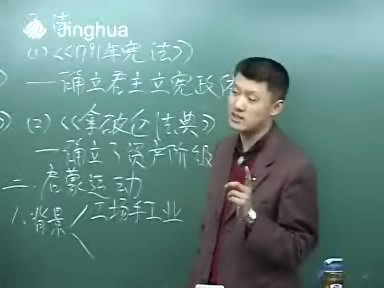 Jinghua
(1)《1791年宪法》
—确立君主立宪政
(2)《拿破仑法典》
—确立了资产阶级
二.启蒙运动
1.背景 工场手工业